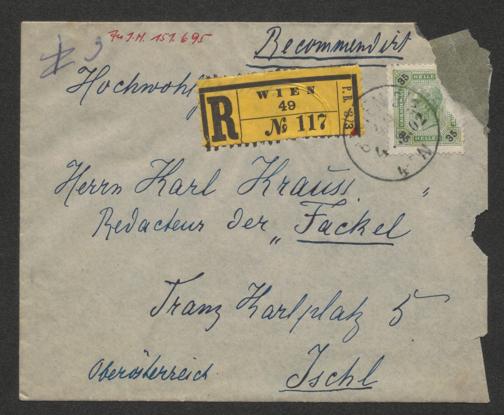 Zu I.N. 151.695
Recommandirt
Hochwohlg
R
WIEN
49
№ 117
35
HELLER
35
35
02
4
Herrn Karl Kraus
Redacteur der „Fackel"
Franz Karlplatz 5
Oberösterreich
Ischl